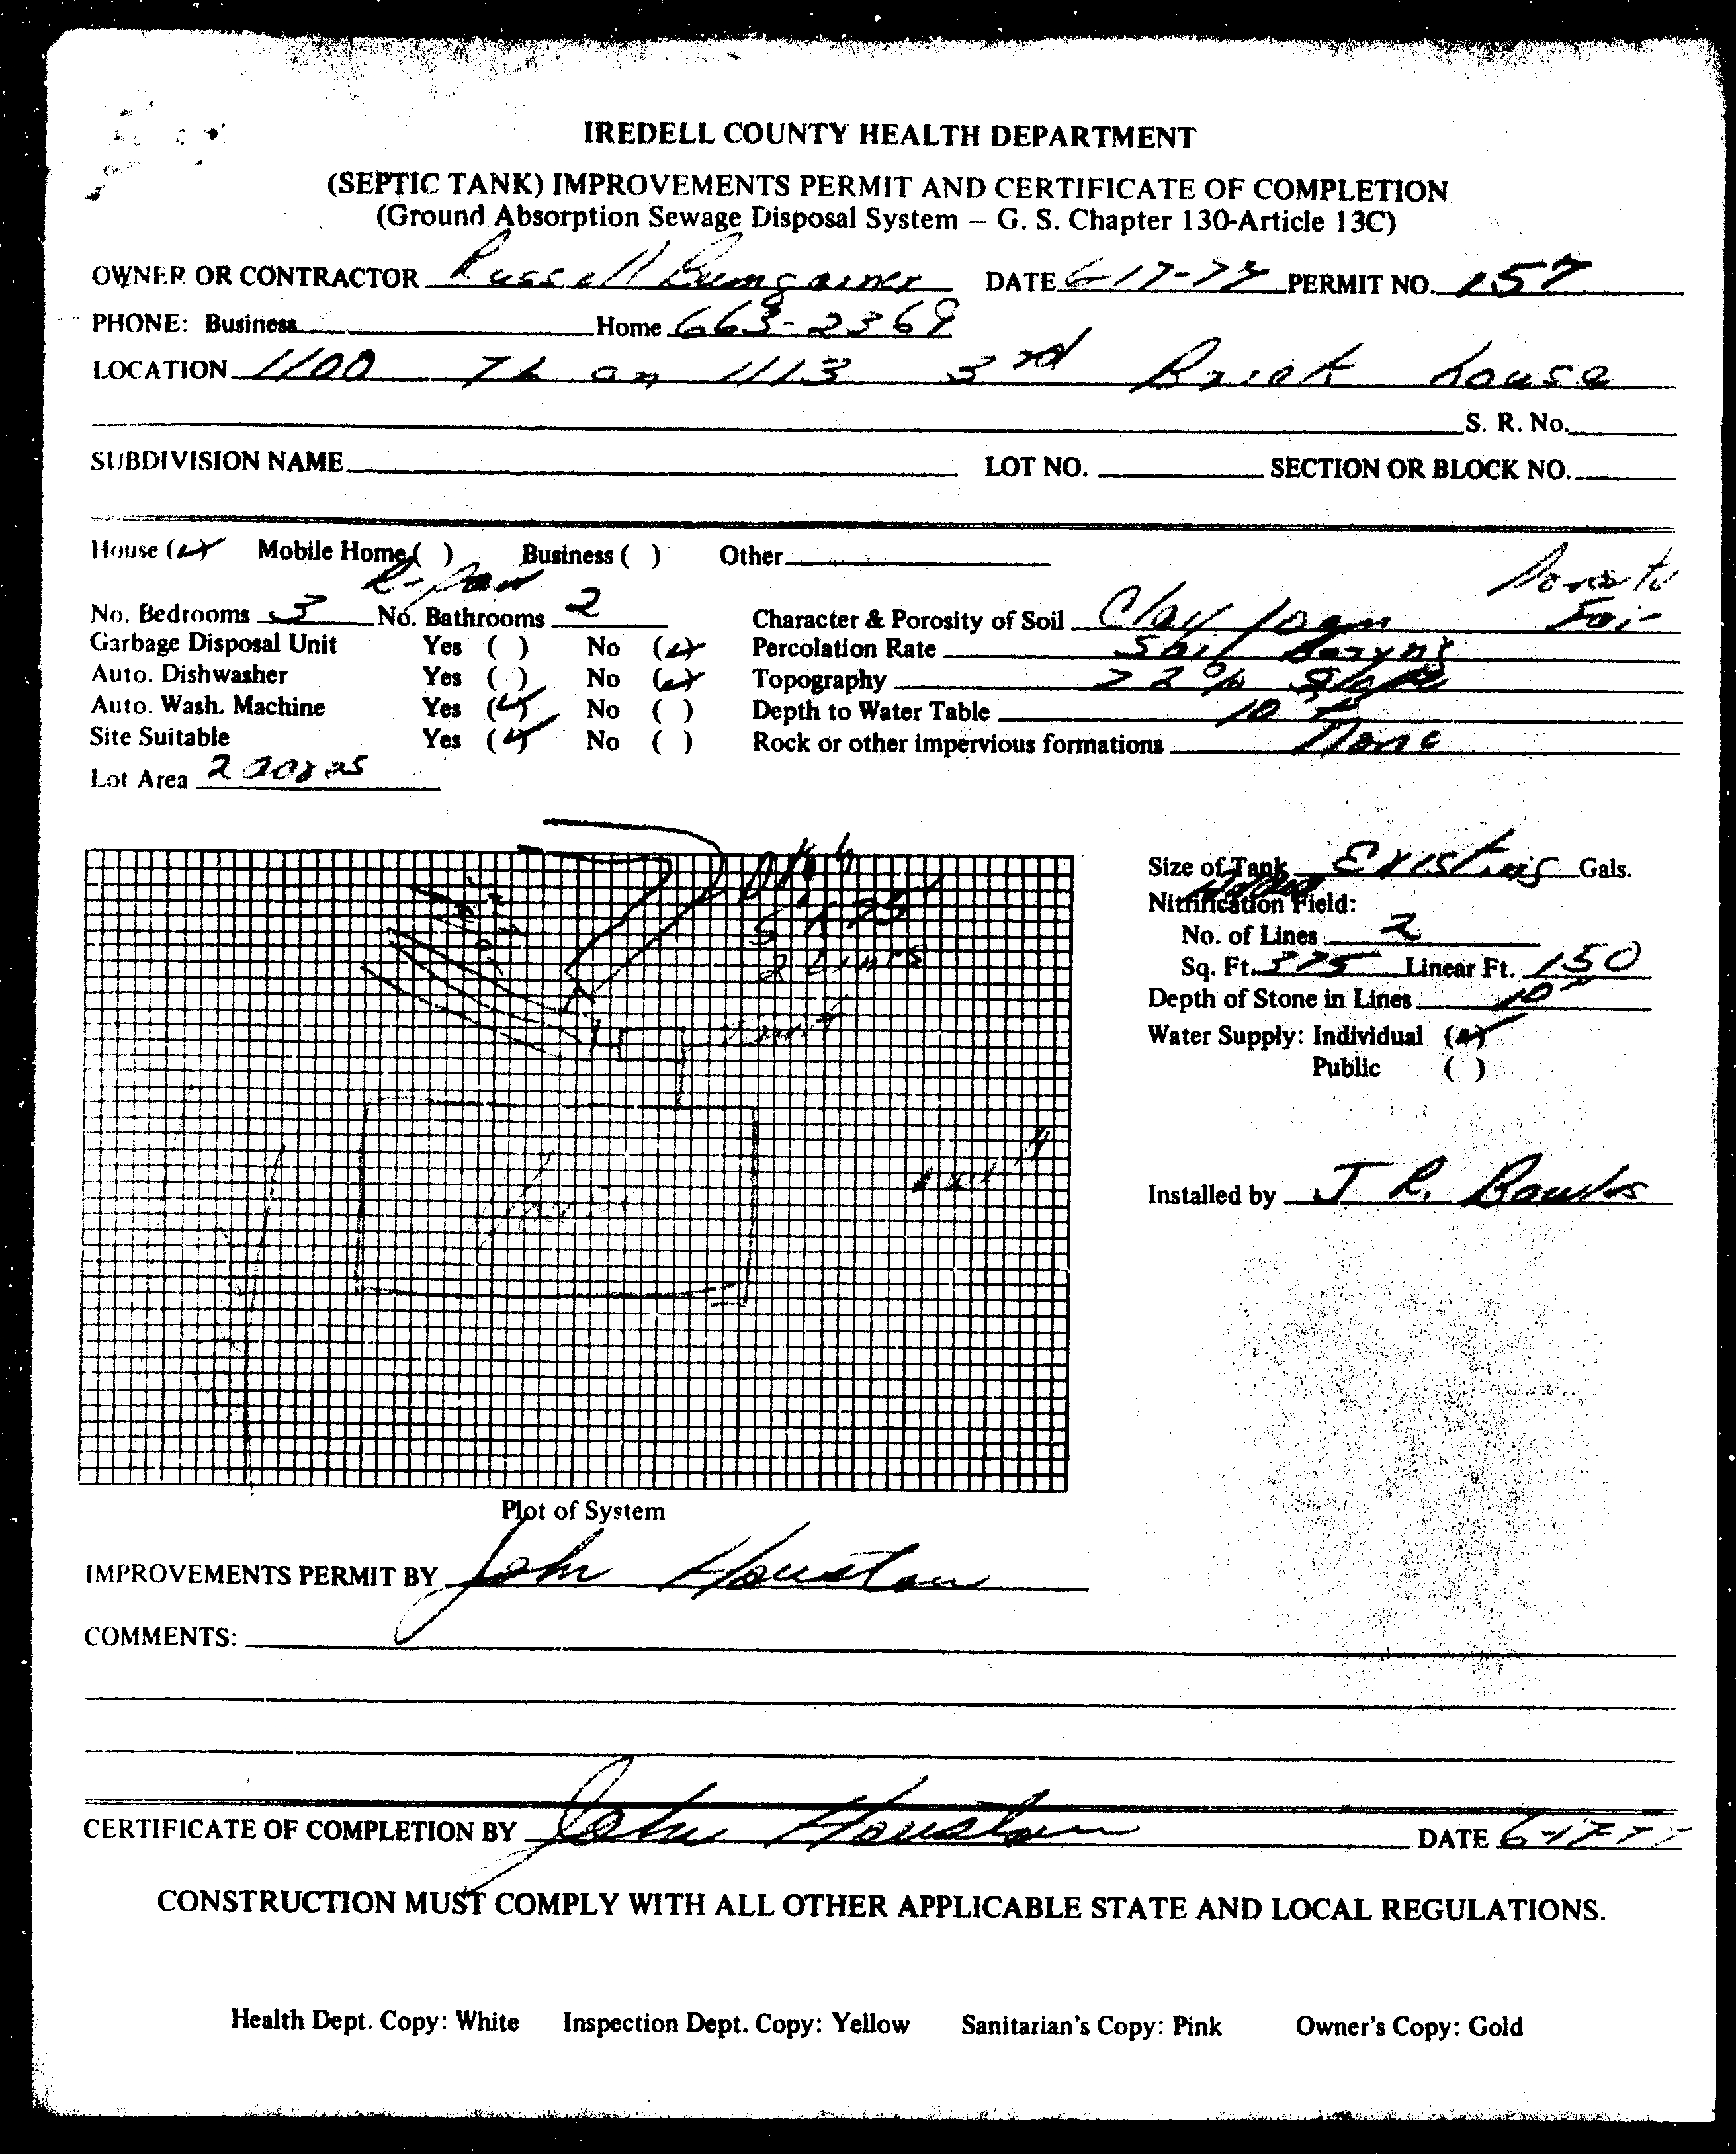 IREDELL COUNTY HEALTH DEPARTMENT
(SEPTIC TANK) IMPROVEMENTS PERMIT AND CERTIFICATE OF COMPLETION
(Ground Absorption Sewage Disposal System – G. S. Chapter 130-Article 13C)
OWNER OR CONTRACTOR Russell Bumgarner DATE 6-17-77 PERMIT NO. 157
PHONE: Business Home 663-2369
LOCATION 1100 TL on 1113 3rd Brick house
S. R. No.
SUBDIVISION NAME LOT NO. SECTION OR BLOCK NO.
House (✓) Mobile Home ( ) Business ( ) Other
Repair
No. Bedrooms 3 No. Bathrooms 2 Character & Porosity of Soil Clay loam Fair
Garbage Disposal Unit Yes ( ) No (✓) Percolation Rate Soil Borings
Auto. Dishwasher Yes ( ) No (✓) Topography 22% Slope
Auto. Wash. Machine Yes (✓) No ( ) Depth to Water Table 10
Site Suitable Yes (✓) No ( ) Rock or other impervious formations None
Lot Area 2 acres
Size of Tank Existing Gals.
Nitrification Field:
No. of Lines 2
Sq. Ft. 375 Linear Ft. 150
Depth of Stone in Lines 10"
Water Supply: Individual (✓)
Public ( )
75'
2 Lines
Installed by J R. Bowles
Plot of System
IMPROVEMENTS PERMIT BY John Houston
COMMENTS:
CERTIFICATE OF COMPLETION BY John Houston DATE 6-17-77
CONSTRUCTION MUST COMPLY WITH ALL OTHER APPLICABLE STATE AND LOCAL REGULATIONS.
Health Dept. Copy: White Inspection Dept. Copy: Yellow Sanitarian's Copy: Pink Owner's Copy: Gold